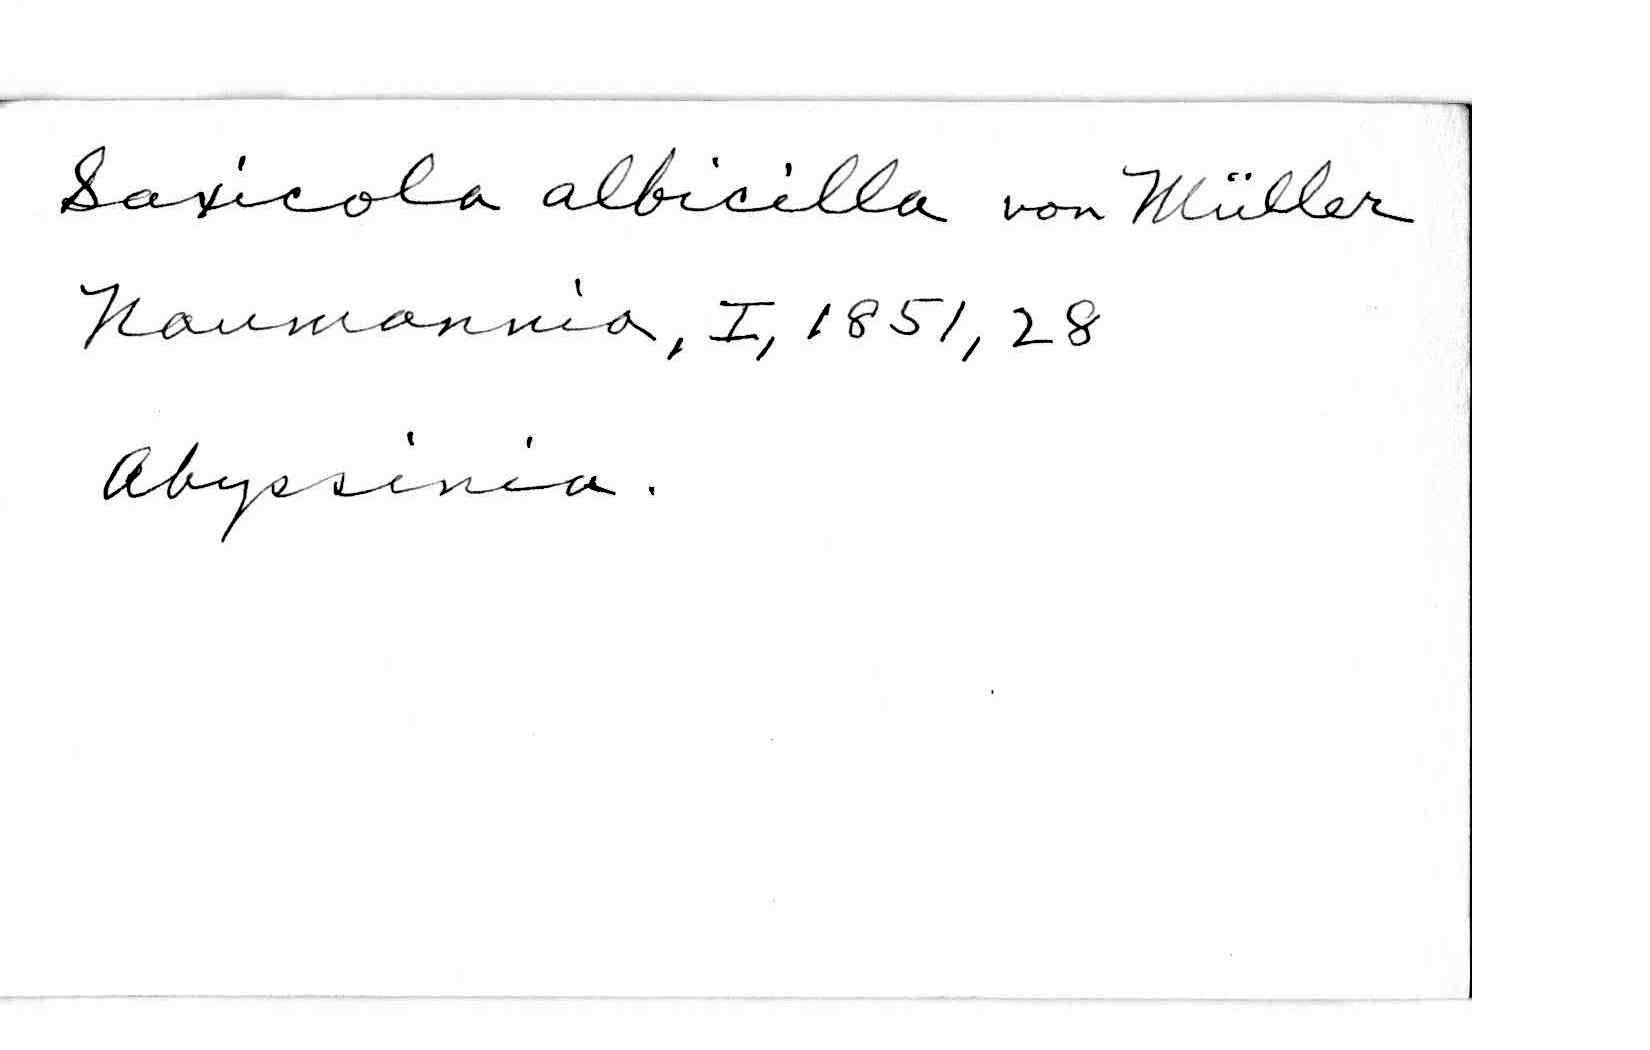 Saxicola albicilla von Müller
Naumannia, I, 1851, 28
Abyssinia.